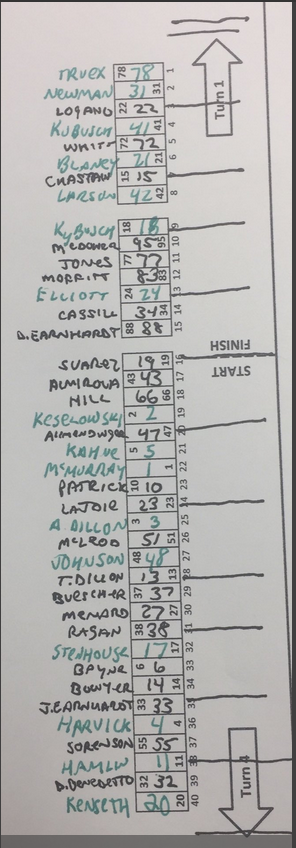 TRUEX 78 78 1
NEWMAN 31 31 2
LOGANO 22 22 3
KUBUSCH 41 41 4
WHITT 72 72 5
BLANEY 21 21 6
CHASTAIN 15 15 7
LARSON 42 42 8
KyBUSCH 18 18 9
McDOWELL 95 95 10
JONES 77 77 11
MOFFITT 83 83 12
ELLIOTT 24 24 13
CASSILL 34 34 14
D.EARNHARDT 88 88 15
SUAREZ 19 19 16
ALMIROLA 43 43 17
HILL 66 66 18
KESELOWSKI 2 2 19
ALMENDINGER 47 47 20
KAHNE 5 5 21
McMURRAY 1 1 22
PATRICK 10 10 23
LAJOIE 23 23 24
A.DILLON 3 3 25
McLEOD 51 51 26
JOHNSON 48 48 27
T.DILLON 13 13 28
BUESCHER 37 37 29
MENARD 27 27 30
RAGAN 38 38 31
STENHOUSE 17 17 32
BAYNE 6 6 33
BOWYER 14 14 34
J.EARNHARDT 33 33 35
HARVICK 4 4 36
SORENSON 55 55 37
HAMLIN 11 11 38
D.BENEDETTO 32 32 39
KENSETH 20 20 40
Turn 1
FINISH
START
Turn 4